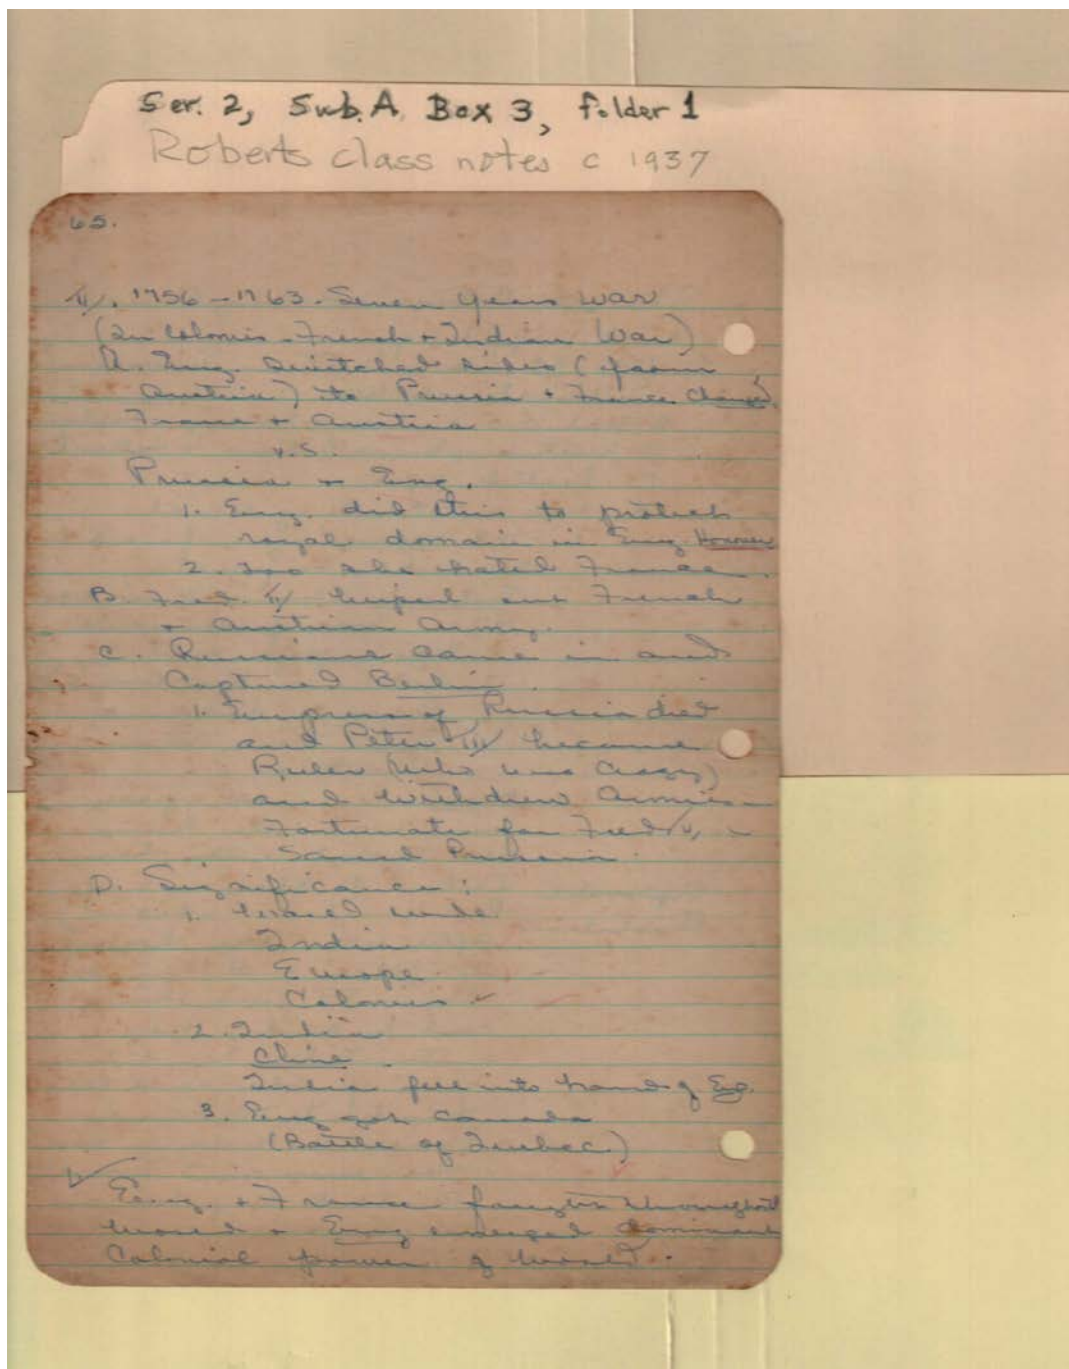 Ser. 2, Sub. A Box 3, folder 1
Roberts class notes c 1937
65.
II. 1756 - 1763. Seven Years War
(In Colonies - French + Indian War)
A. Eng. switched sides (from
Austria) to Prussia + France changed.
France + Austria
v.s.
Prussia + Eng.
1. Eng. did this to protect
royal domain in Eng. Hanover
2. Too she hated France.
B. Fred. II wiped out French
+ Austrian Army.
C. Russians came in and
Captured Berlin.
1. Empress of Russia died
and Peter III became
Ruler (who was crazy)
and withdrew Armies -
Fortunate for Fred
Saved Prussia.
D. Significance:
1. World wide
India
Europe
Colonies
2. India
Clive
India fell into hand of Eng.
3. Eng got Canada
(Battle of Quebec)
Eng. + France fought throughout
world + Eng emerged dominant
Colonial power of world.